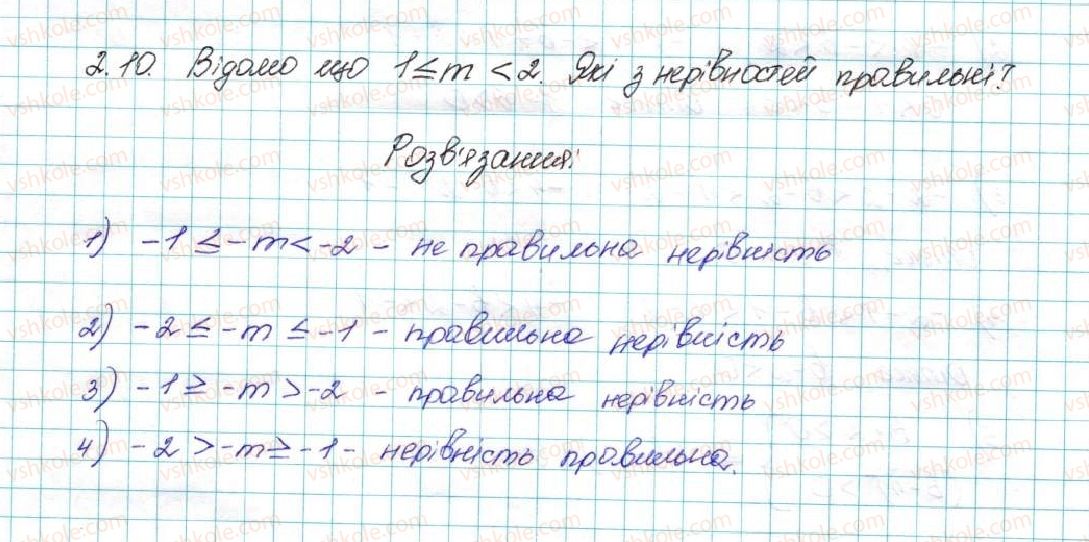 2.10. Відомо що 1 ≤ m < 2. Які з нерівностей правильні?
Розв'язання:
1) -1 ≤ -m < -2 - не правильна нерівність
2) -2 ≤ -m ≤ -1 - правильна нерівність
3) -1 ≥ -m > -2 - правильна нерівність
4) -2 > -m ≥ -1 - нерівність правильна.